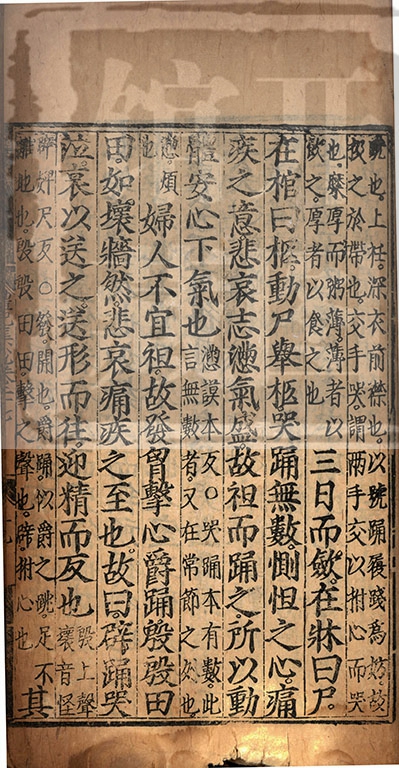 跣也上衽深衣前襟也以號踊履踐爲妨故
扱之於帶也交手哭謂兩手交以拊心而哭
也糜厚而粥薄薄者以
飲之厚者以食之也
三日而斂在牀曰尸
在棺曰柩動尸舉柩哭踊無數惻怛之心痛
疾之意悲哀志懣氣盛故袒而踊之所以動
體安心下氣也
懣誤本反○哭踊本有數此
言無數者又在常節之外也
懣煩
也
婦人不宜袒故發胷擊心爵踊殷殷田
田如壞牆然悲哀痛疾之至也故曰辟踊哭
泣哀以送之送形而往迎精而反也
殷上聲
壞音怪
辟婢尺反○發開也爵踊似爵之跳足不
離地也殷殷田田擊之聲也辟拊心也
其